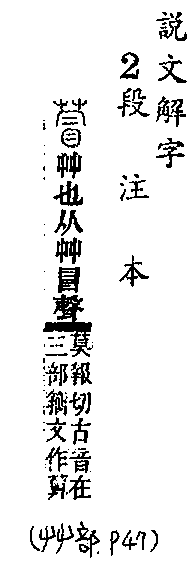 說文解字
2段注本
萺艸也从艸冒聲
莫報切古音在
三部籒文作
(艸部 P47)